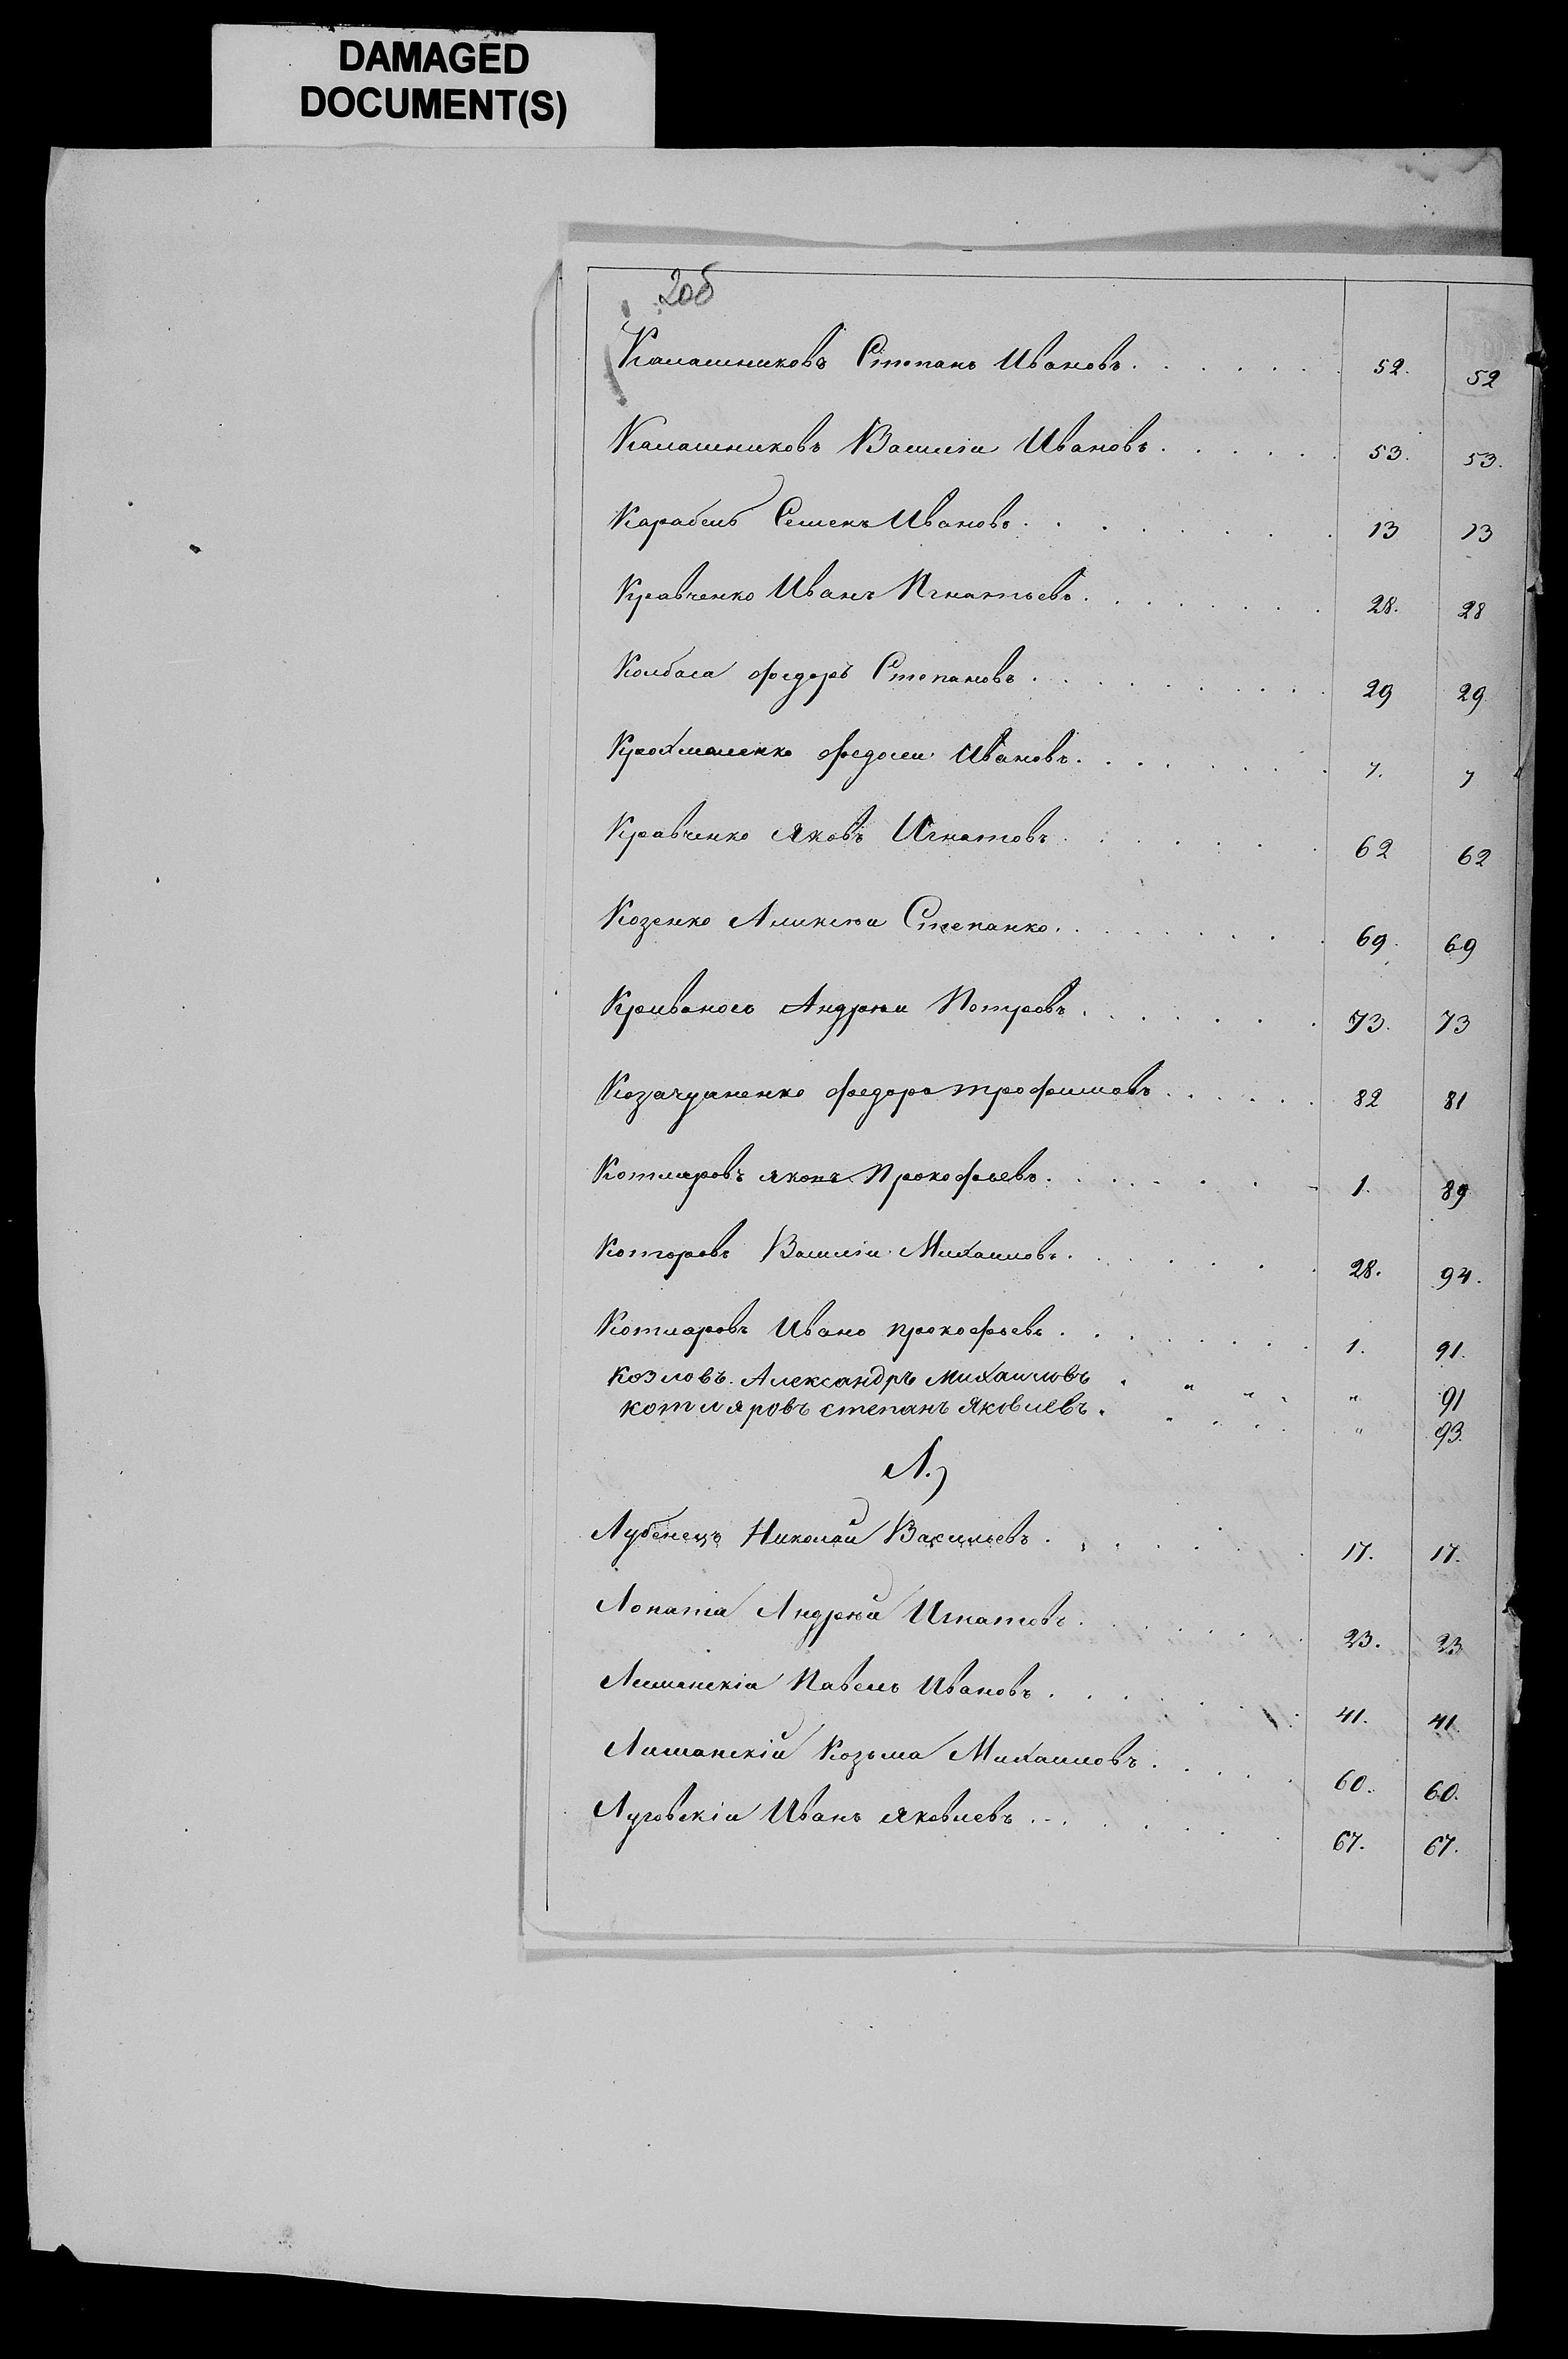 DAMAGED
DOCUMENT(S)
2об
Калашниковъ Степанъ Ивановъ . . . . . . 52. 52
Калашниковъ Василiи Ивановъ . . . . . 53. 53.
Карабень Семенъ Ивановъ . . . . . . . . 13 13
Кравченко Иванъ Игнатьевъ . . . . . . . 28. 28
Колбаса федоръ Степановъ . . . . . . . . 29 29
Крохмаленко федосеи Ивановъ . . . . . . . 7. 7
Кравченко Яковъ Игнатовъ . . . . . . 62 62
Козенко Аликсѣи Степанко . . . . . . . 69. 69
Кривоносъ Андрѣи Петровъ . . . . . . 73. 73
федоръ трофимовъ . . . . . 82 81
Котляровъ яковъ Прокофьевъ . . . . . . . 1. 89
Которовъ Василiи Михаиловъ . . . . . . 28. 94.
Котляровъ Иванъ прокофьевъ . . . . . . . 1. 91.
козловъ. Александръ михаиловъ . " " . " 91
котляровъ степанъ яковлевъ . " . . . " 93.
Л.
Лубенецъ Николай Васильевъ . . . . . . . 17. 17.
Лопата Андрѣй Игнатовъ . . . . . . 23. 23
Лиманскiи Павелъ Ивановъ . . . . . . 41. 41.
Лиманскiй Козьма Михаиловъ . . . . 60. 60.
Луговскiи Иванъ яковлевъ . . . . . . . 67. 67.